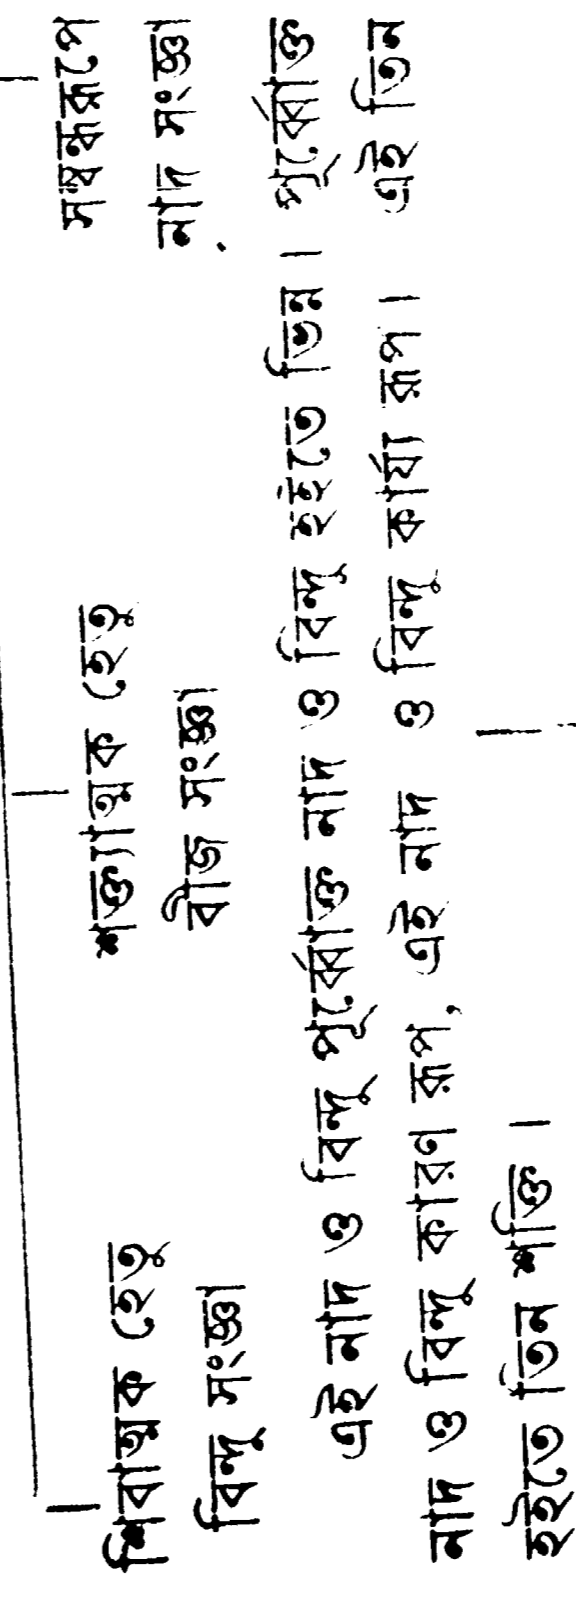 শিবাত্মক হেতু শক্ত্যাত্মক হেতু সম্বন্ধরূপে
বিন্দু সংজ্ঞা বীজ সংজ্ঞা নাদ সংজ্ঞা
এই নাদ ও বিন্দু পূর্ব্বোক্ত নাদ ও বিন্দু হইতে ভিন্ন। পূর্ব্বোক্ত
নাদ ও বিন্দু কারণ রূপ, এই নাদ ও বিন্দু কার্য্য রূপ। এই তিন
হইতে তিন শক্তি।